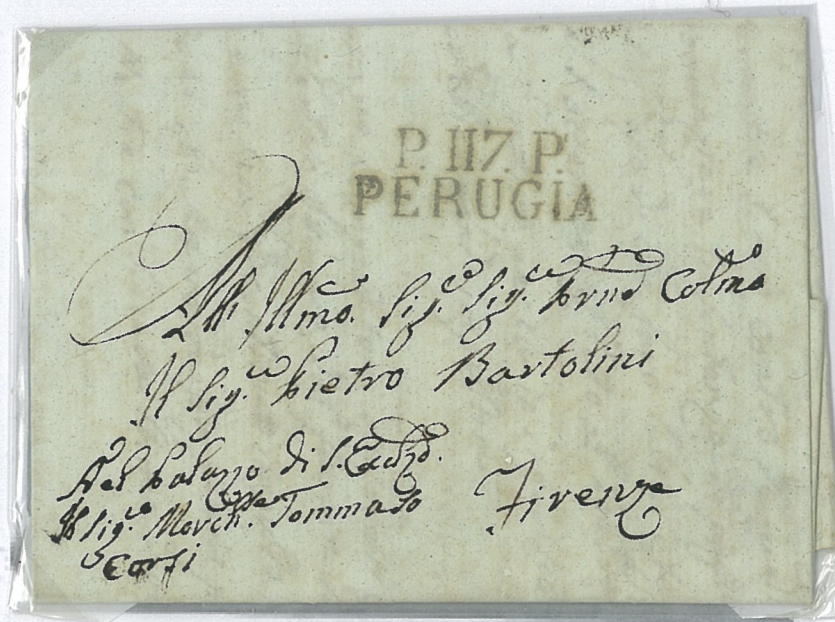 P. 117. P.
PERUGIA
All Illmo. Sig.re Sig.re Prne Colmo
Il Sig.re Pietro Bartolini
Nel Palazzo di S. Ecclza.
Il Sig.re March.se Tommaso Firenze
Corsi